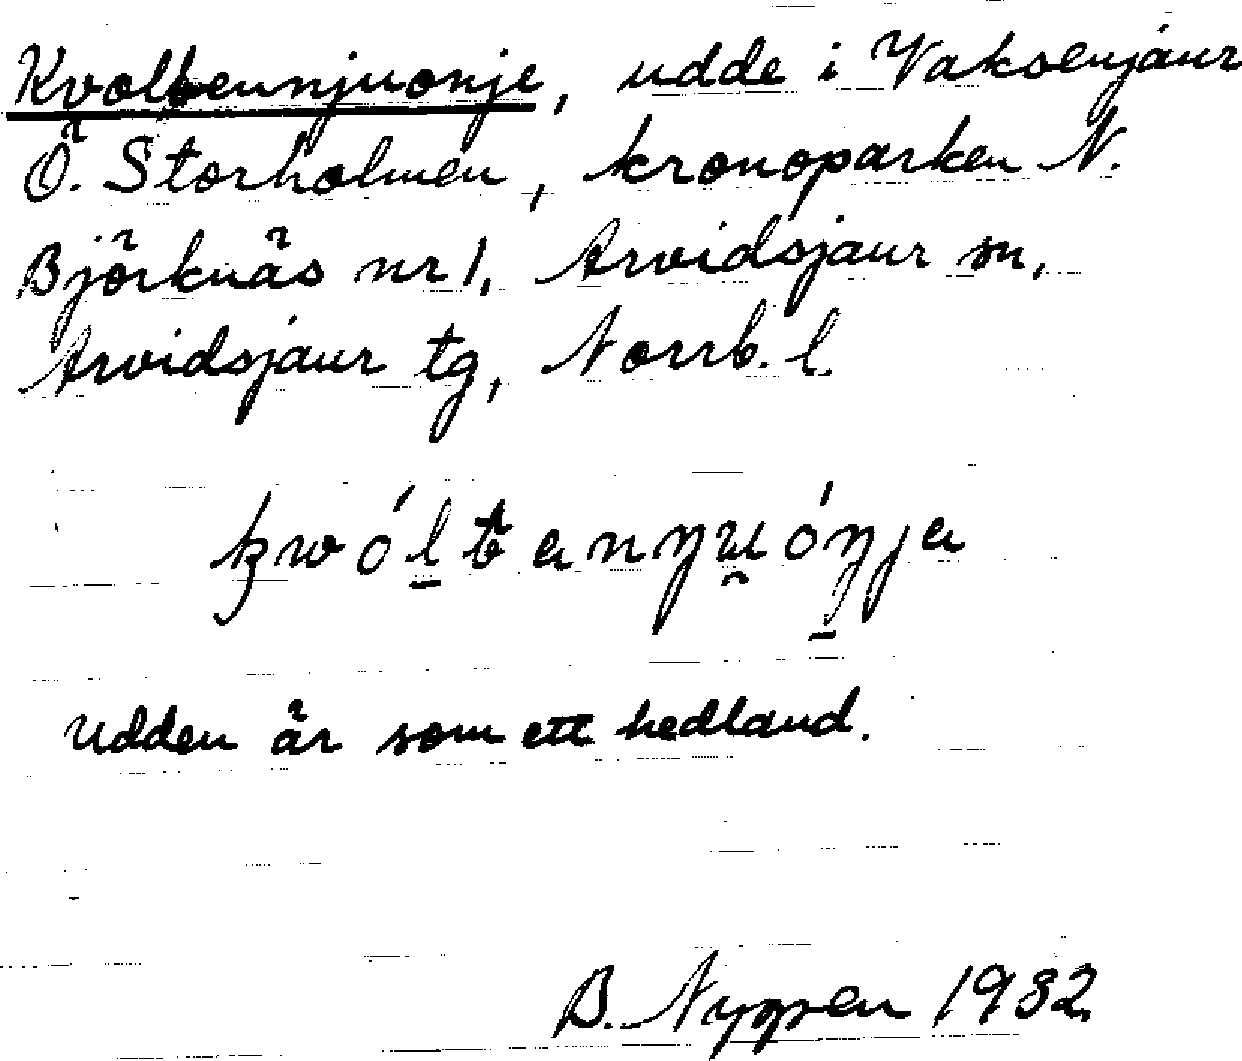 Kvolbeunjuonje, udde i Vaksenjaur
Ö. Storholmen, kronoparken N.
Björknäs nr 1, Arvidsjaur sn,
Arvidsjaur tg, Norrb. l.
Udden är som ett hedland.
B. 1932